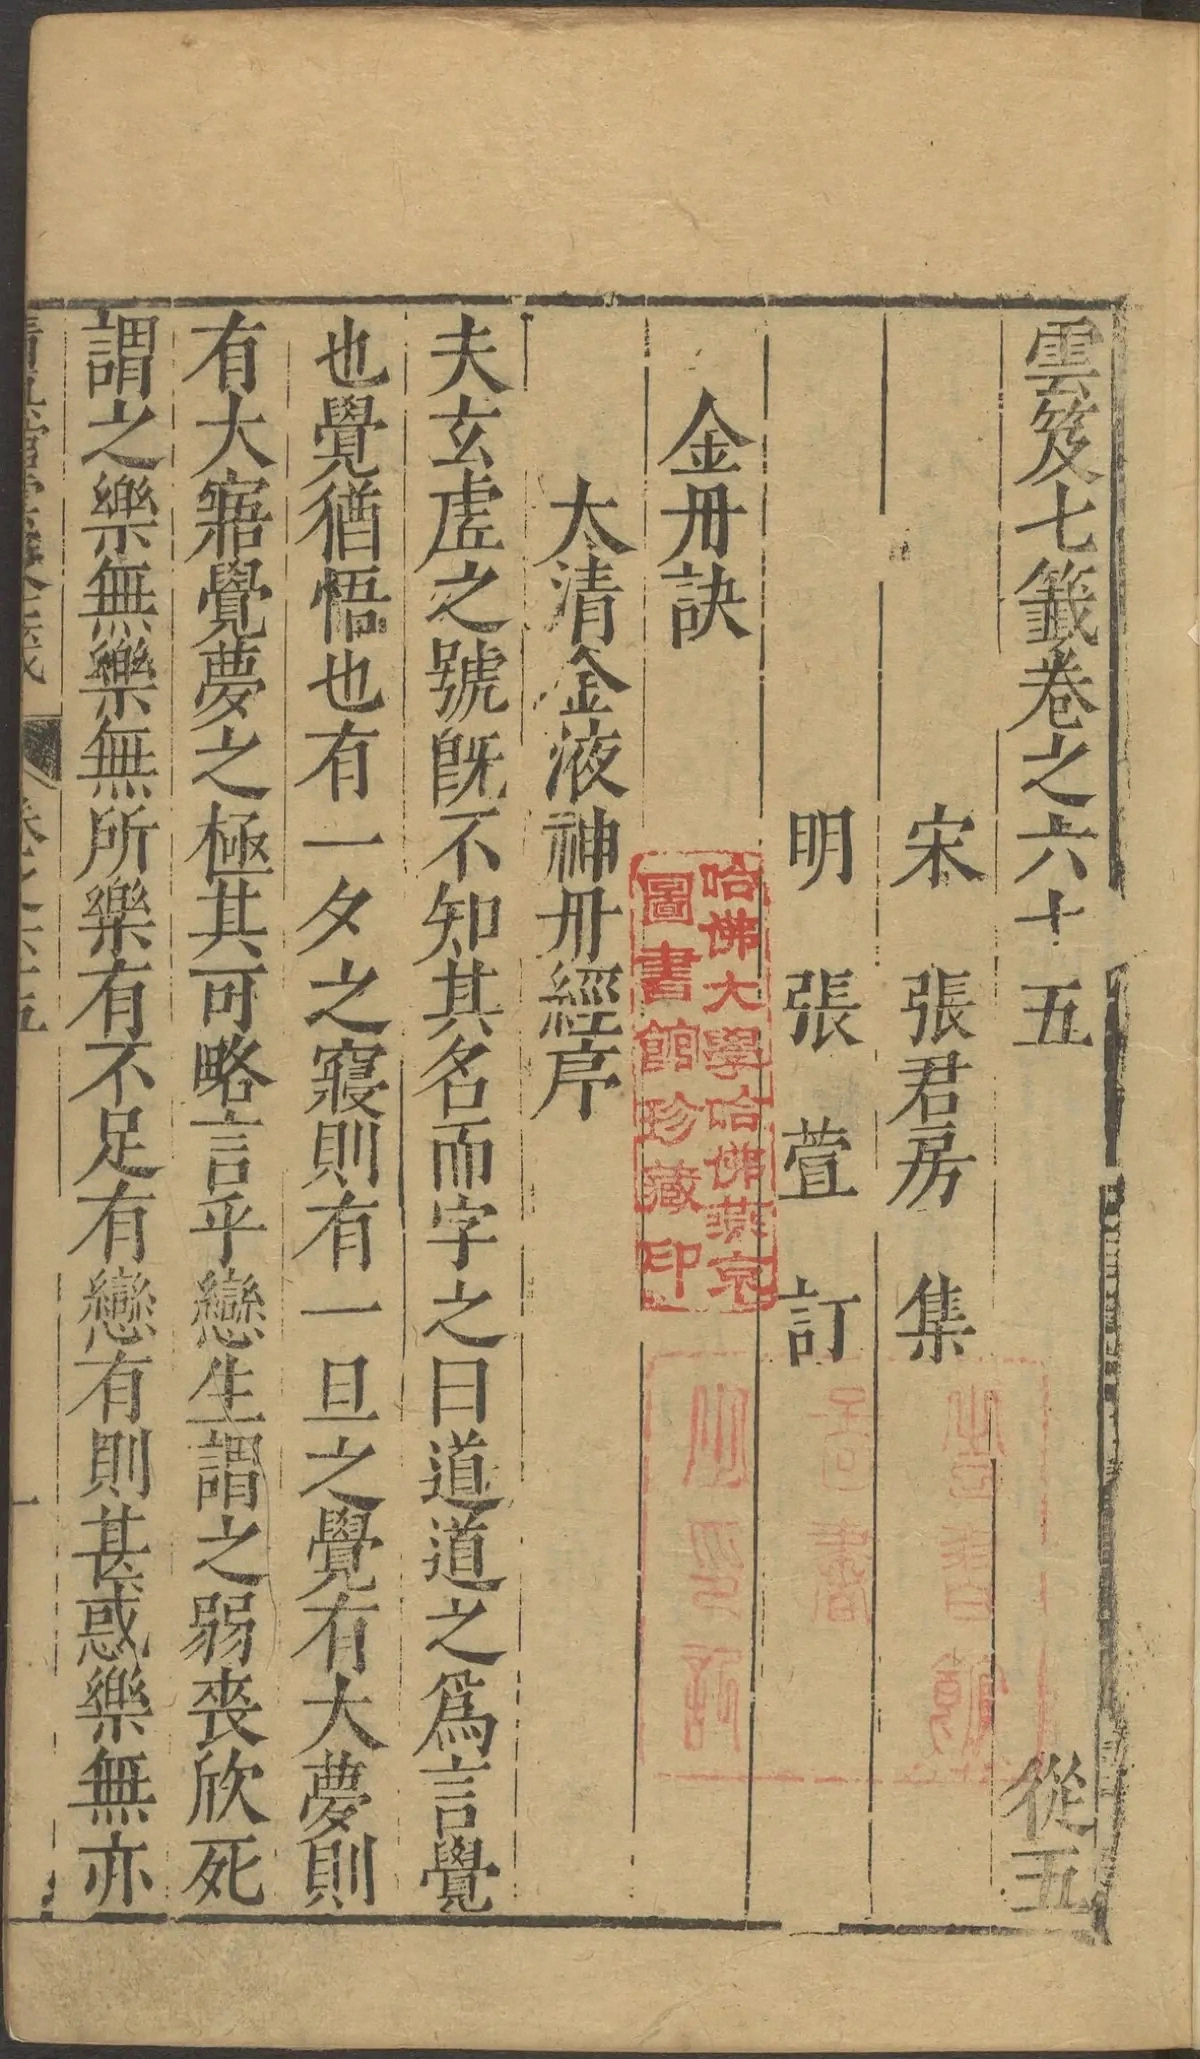 雲笈七籤卷之六十五　從五
宋　張君房　集
明　張　萱　訂
金丹訣
太清金液神丹經序
夫玄虛之號旣不知其名而字之曰道道之爲言覺
也覺猶悟也有一夕之寢則有一旦之覺有大夢則
有大寤覺夢之極其可略言乎戀生謂之弱喪欣死
謂之樂無樂無所樂有不足有戀有則甚惑樂無亦
卷之六十五
一
哈佛大學哈佛燕京
圖書館珍藏印